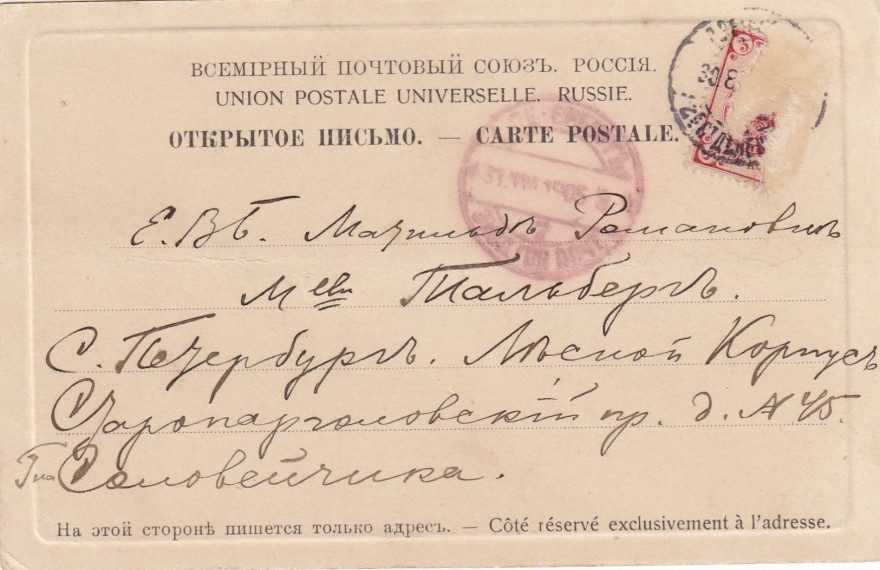 ВСЕМІРНЫЙ ПОЧТОВЫЙ СОЮЗЪ. РОССІЯ.
UNION POSTALE UNIVERSELLE. RUSSIE.
ОТКРЫТОЕ ПИСЬМО. — CARTE POSTALE.
3
Е. В Б. Матильдѣ Романовнѣ
Melle Тальбергъ.
С. Петербургъ. Лѣсной Корпусъ
Старопарголовскій пр. д. № 45.
Гна Соловейчика.
На этой сторонѣ пишется только адресъ. — Côté réservé exclusivement à l'adresse.